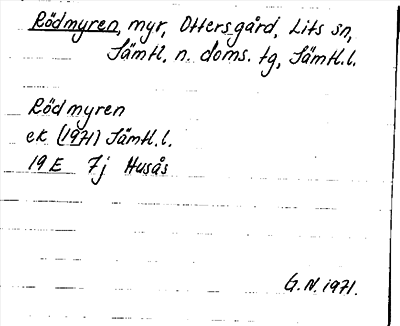 Rödmyren, myr, Ottersgård, Lits sn,
Jämtl. n. doms. tg, Jämtl.l.
Rödmyren
ek (1971) Jämtl.l.
19 E 7j Husås
G.N. 1971.